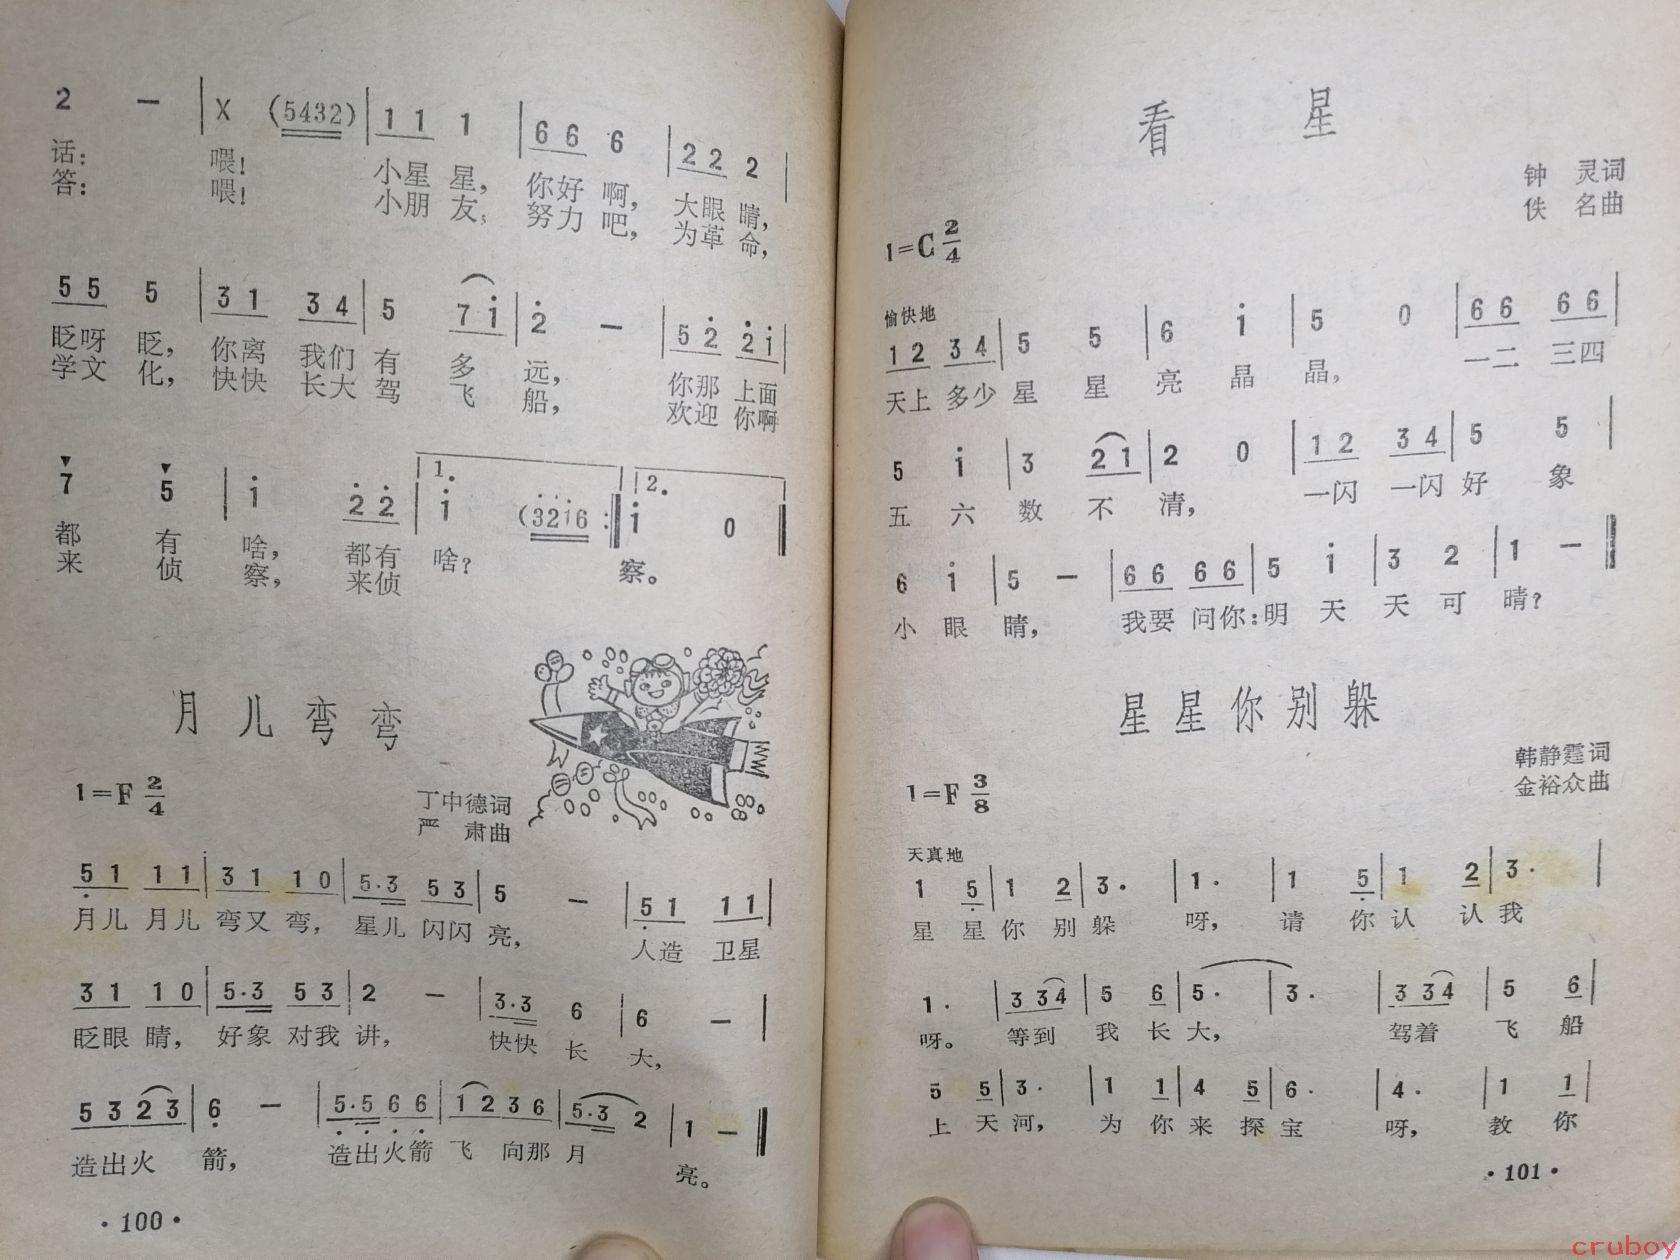 2 — | X (5432) | 1 1 1 | 6 6 6 | 2 2 2 |
话: 喂! 小星 星, 你好 啊, 大眼 睛,
答: 喂! 小朋 友, 努力 吧, 为革 命,
5 5 5 | 3 1 3 4 | 5 7 i | 2 — | 5 2 2 i |
眨呀 眨, 你离 我们 有 多 远, 你那 上面
学文 化, 快快 长大 驾 飞 船, 欢迎 你啊
7 5 | i 2 2 | 1. i (32i6 :‖ 2. i 0 ‖
都 有 啥, 都有 啥? 察。
来 侦 察, 来侦
月儿弯弯
1=F 2/4
丁中德词
严 肃曲
5 1 1 1 | 3 1 1 0 | 5·3 5 3 | 5 — | 5 1 1 1 |
月儿 月儿 弯又 弯, 星儿 闪闪 亮, 人造 卫星
3 1 1 0 | 5·3 5 3 | 2 — | 3·3 6 | 6 — |
眨眼 睛, 好象 对我 讲, 快快 长 大,
5 3 2 3 | 6 — | 5·5 6 6 | 1 2 3 6 | 5·3 2 | 1 — ‖
造出火 箭, 造出火箭 飞 向那 月 亮。
·100·
看 星
钟 灵词
佚 名曲
1=C 2/4
愉快地
1 2 3 4 | 5 5 | 6 i | 5 0 | 6 6 6 6 |
天上 多少 星 星 亮 晶 晶, 一二 三四
5 i | 3 2 1 | 2 0 | 1 2 3 4 | 5 5 |
五 六 数 不 清, 一闪 一闪 好 象
6 i | 5 — | 6 6 6 6 | 5 i | 3 2 | 1 — ‖
小 眼 睛, 我要 问你:明 天 天 可 晴?
星星你别躲
韩静霆词
金裕众曲
1=F 3/8
天真地
1 5 | 1 2 | 3· | 1· | 1 5 | 1 2 | 3· |
星 星 你 别 躲 呀, 请 你 认 认 我
1· | 3 3 4 | 5 6 | 5· | 3· | 3 3 4 | 5 6 |
呀。 等到 我 长 大, 驾着 飞 船
5 5 | 3· | 1 1 | 4 5 | 6· | 4· | 1 1 |
上 天 河, 为 你 来 探 宝 呀, 教 你
·101·
cruboy